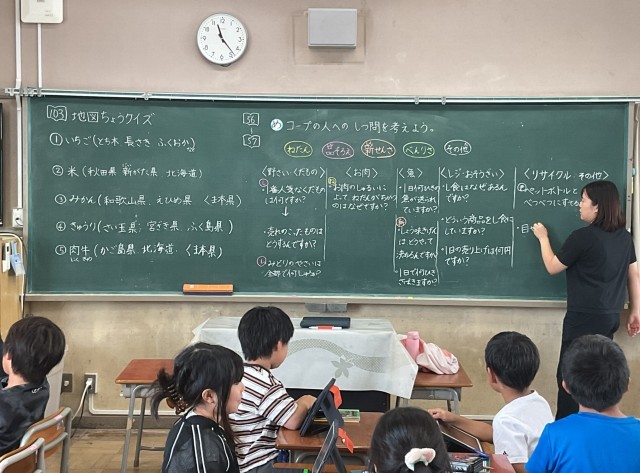 103 地図ちょうクイズ
① いちご(とち木 長さき ふくおか)
② 米(秋田県 新がた県 北海道)
③ みかん(和歌山県、えひめ県 くま本県)
④ きゅうり(さい玉県 宮ざき県 ふく島県)
⑤ 肉牛(かご島県 北海道 くま本県)
56
57
め コープの人への しつ問を考えよう。
ねだん
品ぞろえ
新せんさ
べんりさ
その他
〈野さい・くだもの〉
一番人気なくだもの
は何ですか?
・売れのこったものは
どうするんですか?
みどりのやさいは
全部で何しゅるい?
〈お肉〉
お肉のしゅるいに
よって、ねだんがちがう
のはなぜですか?
〈魚〉
・1日何ひきの
魚が送られ
ていますか?
しょうみきげん
はどうやって
決めるんですか?
・1日で何ひき
さばきますか?
〈レジ・おそうざい〉
・し食はなぜあるん
ですか?
・どういう商品をし食に
していますか?
・1日の売り上げは何円
ですか?
〈リサイクル・その他〉
ペットボトルと
べつべつにする
・目